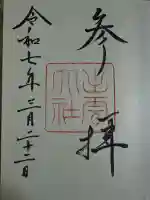 参拝
出雲大社
令和七年三月二十二日